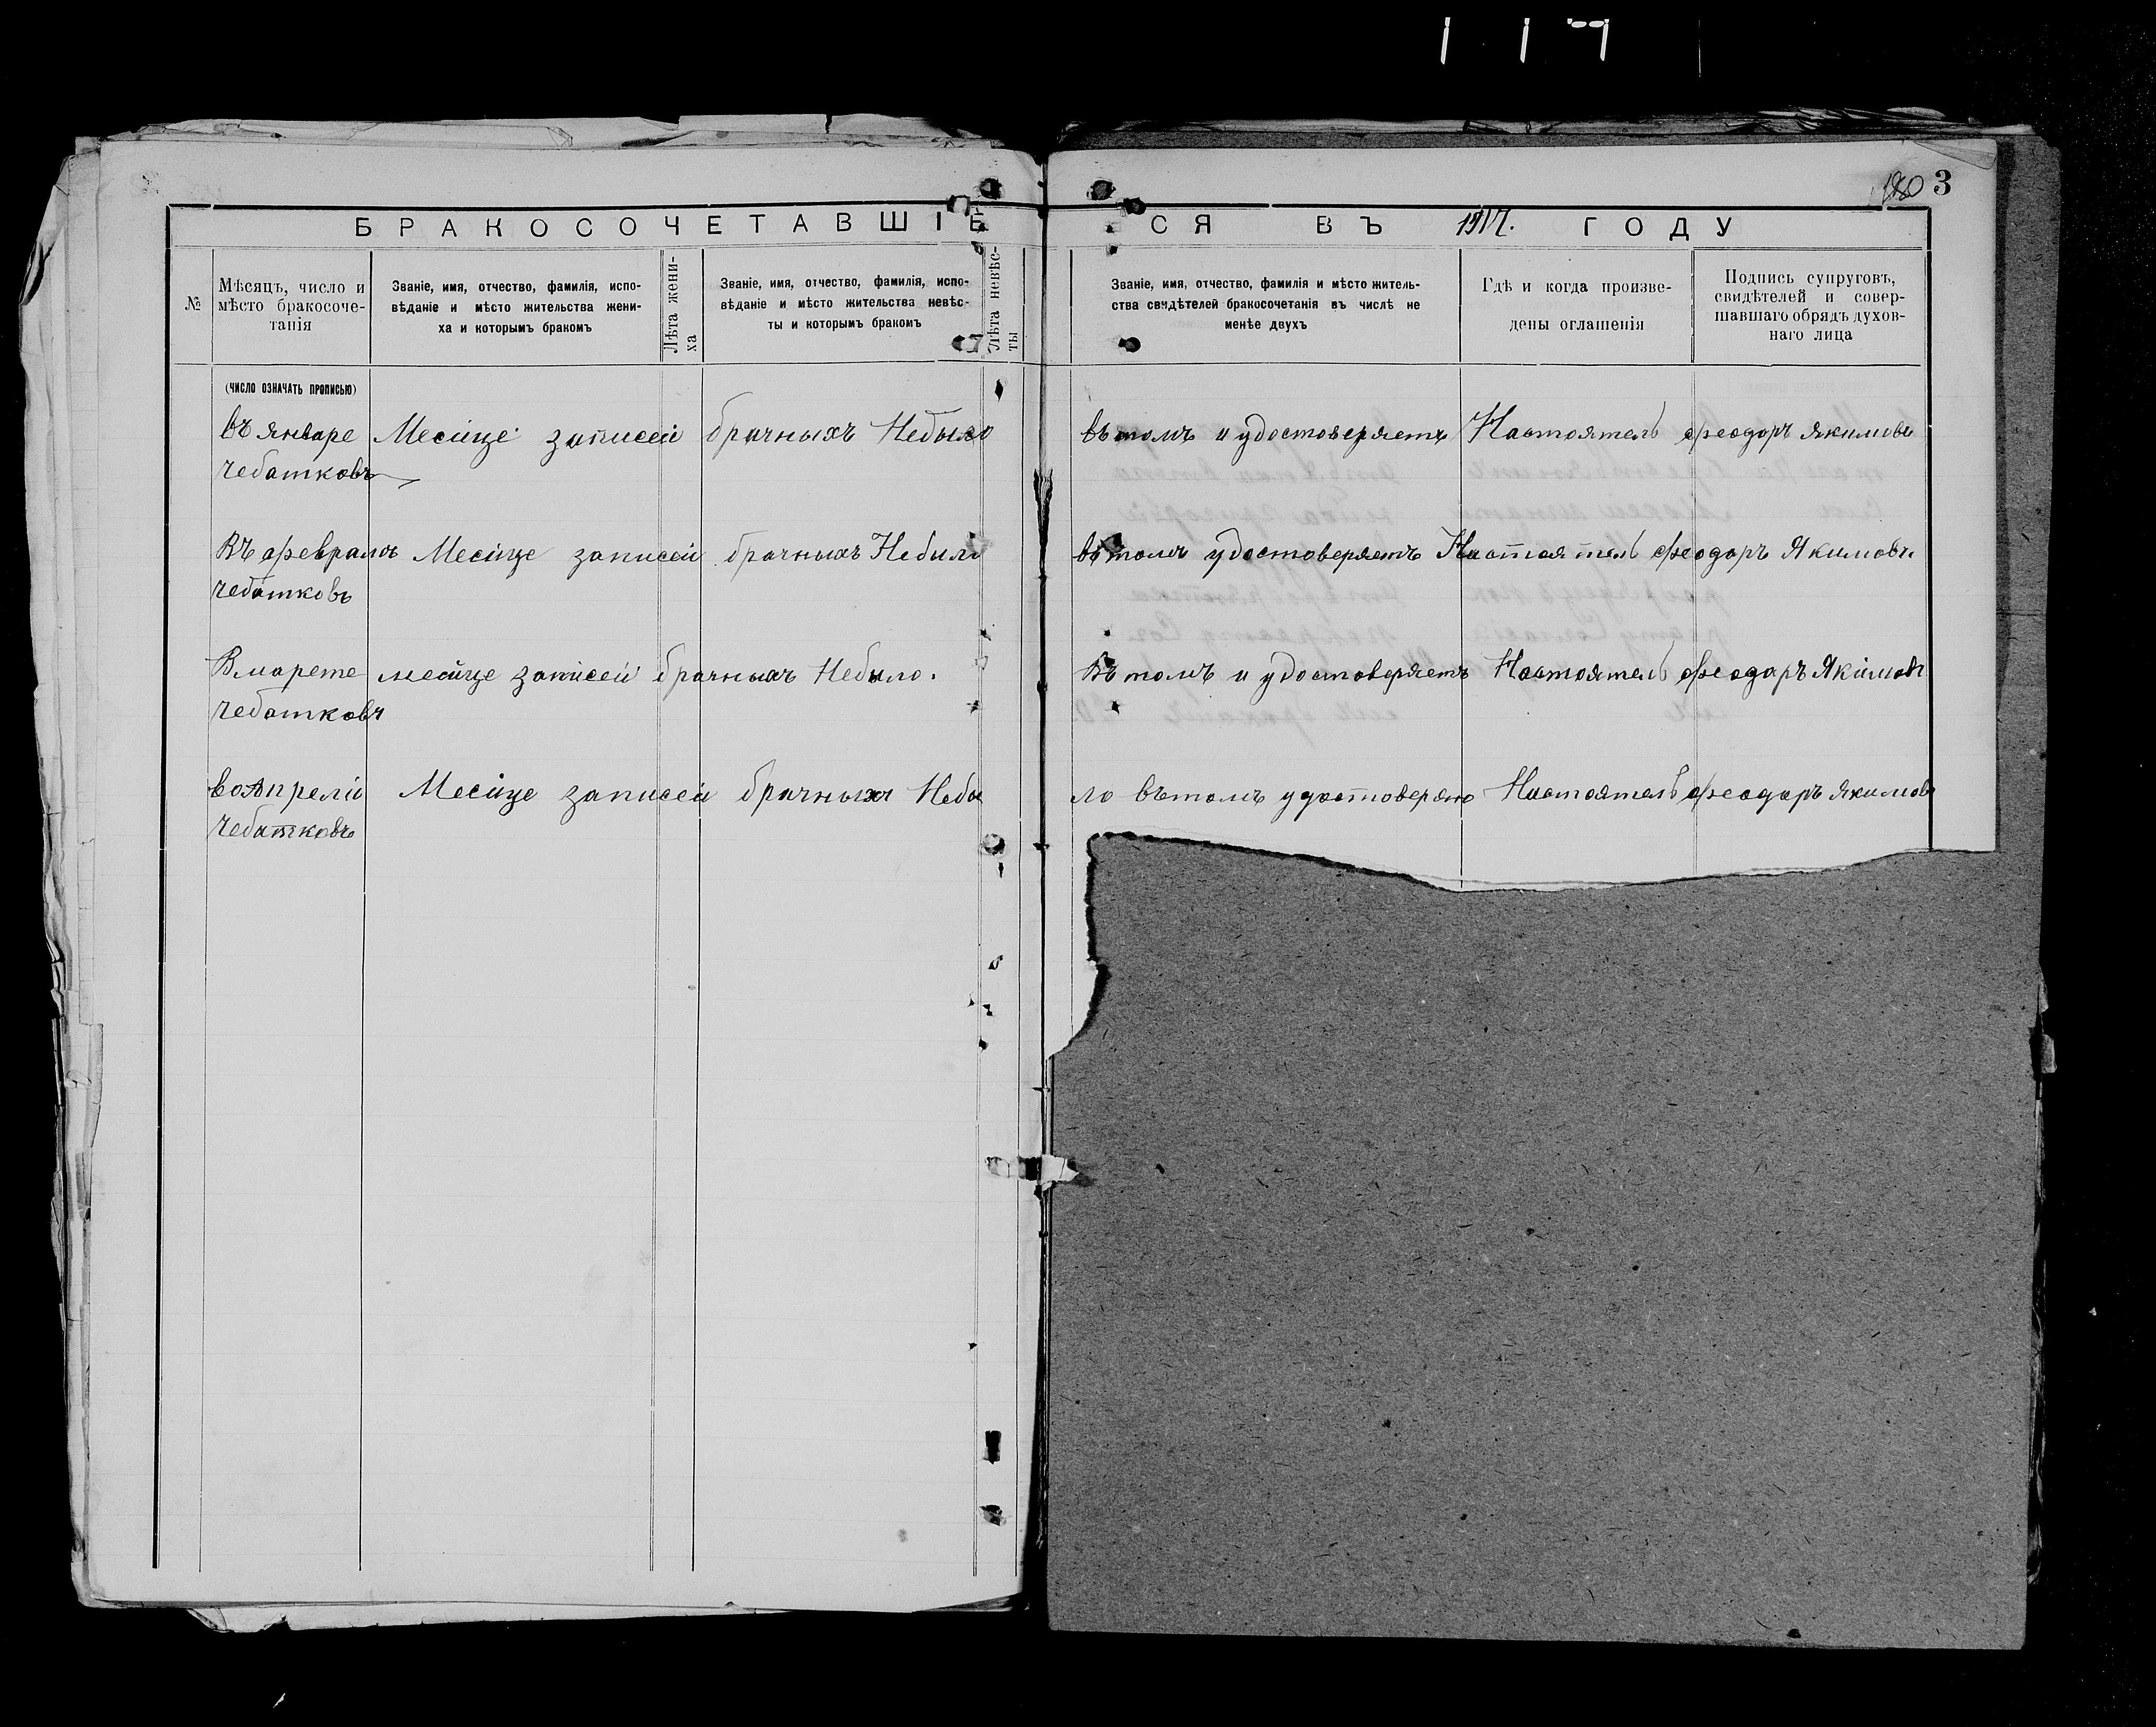 3
БРАКОСОЧЕТАВШІЕСЯ ВЪ 1917. ГОДУ
№
Мѣсяцъ, число и
мѣсто бракосоче-
танія
Званіе, имя, отчество, фамилія, испо-
вѣданіе и мѣсто жительства жени-
ха и которымъ бракомъ
Лѣта жени-
ха
Званіе, имя, отчество, фамилія, испо-
вѣданіе и мѣсто жительства невѣс-
ты и которымъ бракомъ
Лѣта невѣс-
ты
Званіе, имя, отчество, фамилія и мѣсто житель-
ства свидѣтелей бракосочетанія въ числѣ не
менѣе двухъ
Гдѣ и когда произве-
дены оглашенія
Подпись супруговъ,
свидѣтелей и совер-
шавшаго обрядъ духов-
наго лица
(ЧИСЛО ОЗНАЧАТЬ ПРОПИСЬЮ)
въ январе Месіце записей брачныхъ Небыло въ томъ и удостоверяетъ Настоятель феодоръ Якимовъ
Чебатковъ
Въ феврале Месіце записей брачныхъ Небыло въ томъ удостоверяетъ Настоятель феодоръ Якимовъ
Чебатковъ
В марете месіце записей брачныхъ Небыло. Въ томъ и удостоверяетъ Настоятель феодоръ Якімовъ
Чебатковъ
во Апреліи Месіце записей брачныхъ Небы ло въ томъ удостоверяю Настоятель феодоръ Якимовъ
Чебатковъ